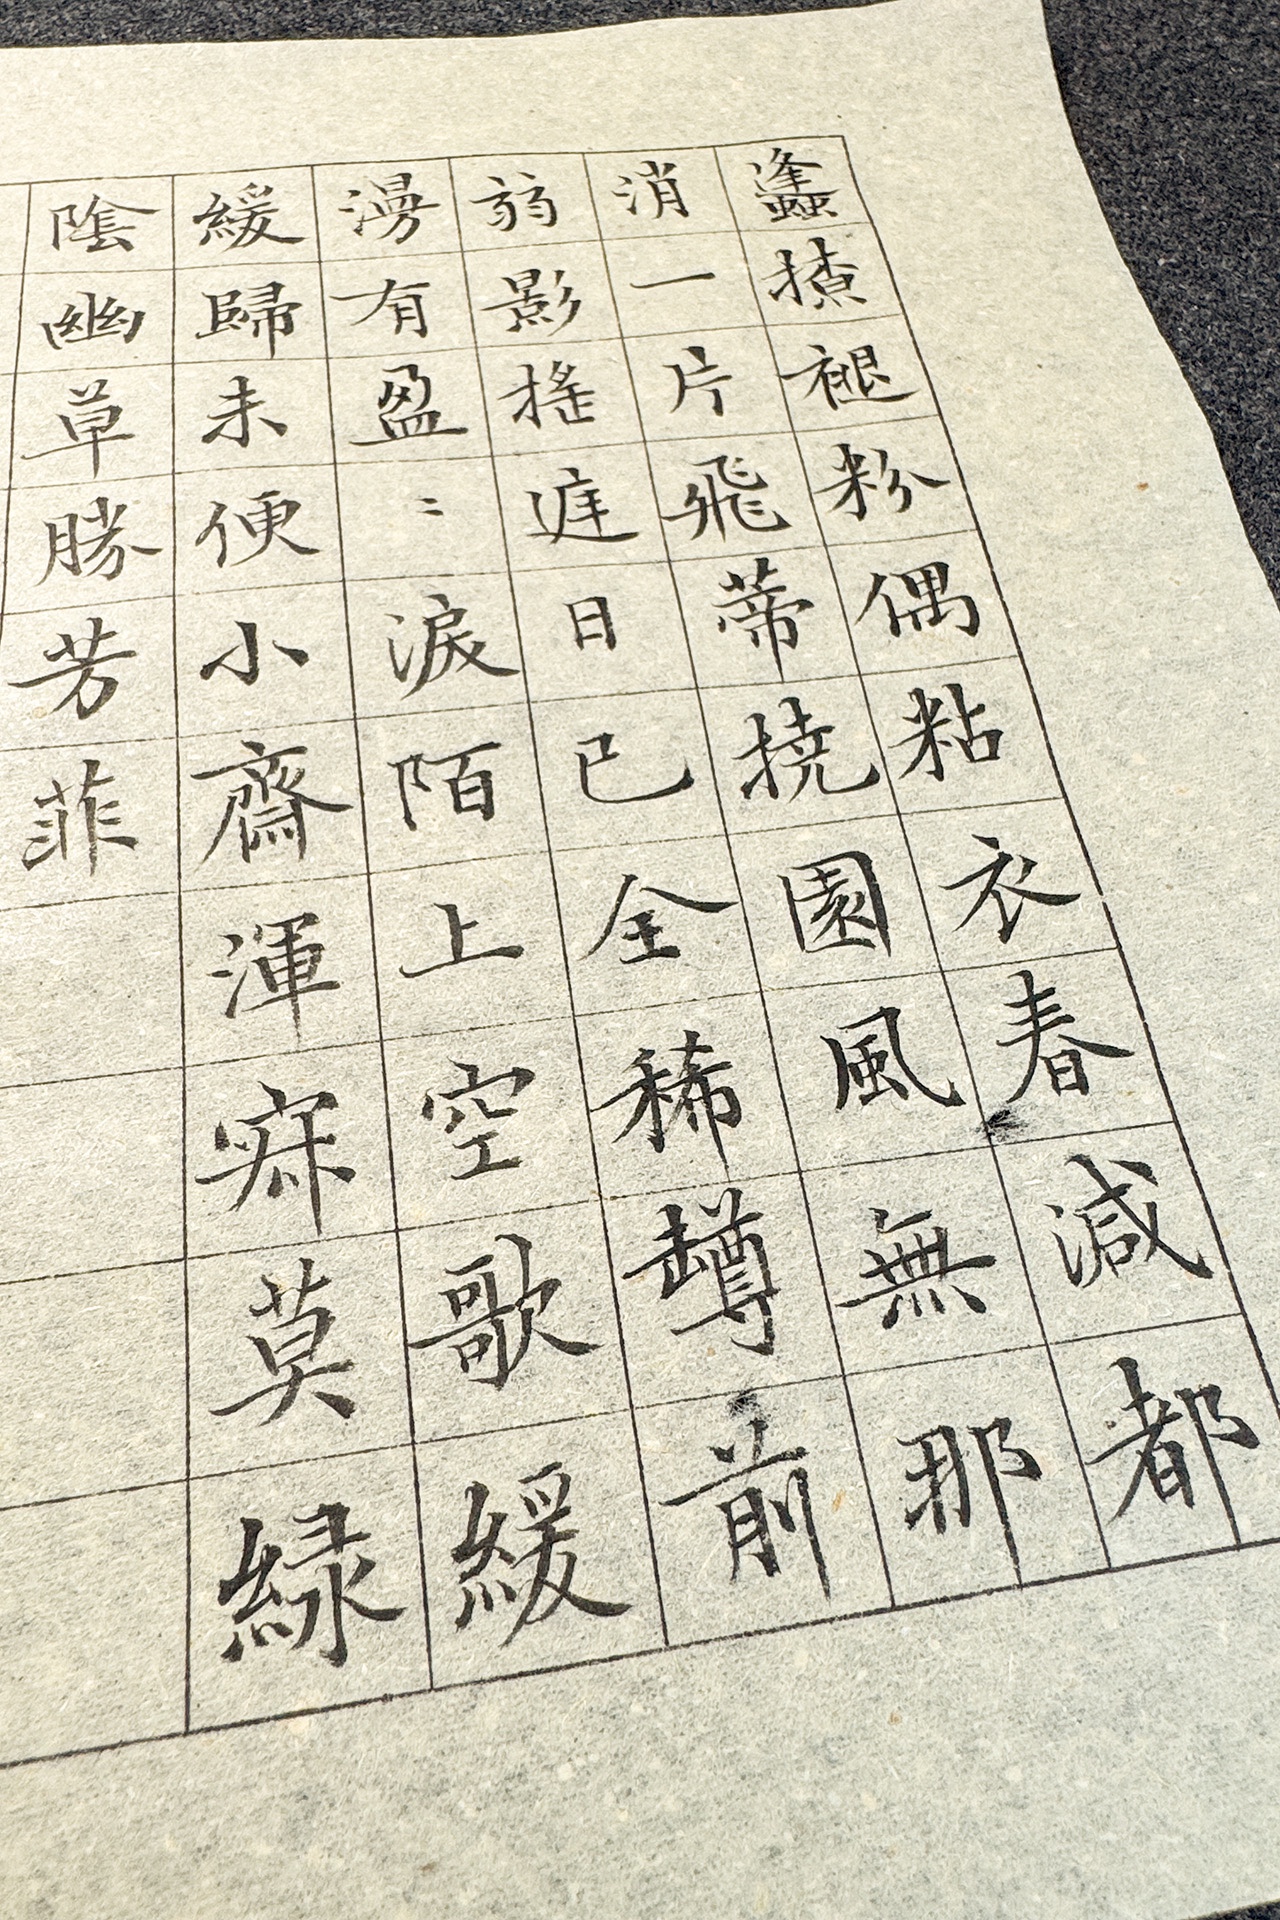 蠭撩褪粉偶粘衣春減都
消一片飛蒂撓園風無那
弱影搖庭日已全稀罇前
漫有盈〻淚陌上空歌緩
緩歸未便小齋渾寂莫綠
陰幽草勝芳菲